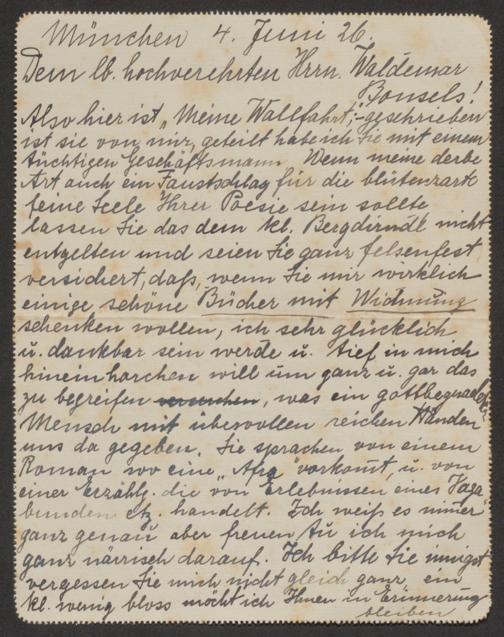 München 4. Juni 26.
Dem lb. hochverehrten Hrrn. Waldemar
Bonsels!
Also hier ist „Meine Wallfahrt;" geschrieben
ist sie von mir, geteilt habe ich sie mit einem
tüchtigen Geschäftsmann. Wenn meine derbe
Art auch ein Faustschlag für die blütenzarte
feine Seele Ihrer Poesie sein sollte
lassen Sie das dem kl. Bergdirndl nicht
entgelten und seien Sie ganz felsenfest
versichert, daß, wenn Sie mir wirklich
einige schöne Bücher mit Widmung
schenken wollen, ich sehr glücklich
u. dankbar sein werde u. tief in mich
hineinhorchen will um ganz u. gar das
zu begreifen, was ein gottbegnadeter
Mensch mit übervollen reichen Händen
uns da gegeben. Sie sprachen von einem
Roman wo eine „ vorkomt, u. von
einer Erzählg. die „von Erlebnissen eines Vaga
bunden etz. handelt. Ich weiß es nimmer
ganz genau aber freuen tu ich mich
ganz närrisch darauf. Ich bitte Sie innigst
vergessen Sie mich nicht gleich ganz, ein
kl. wenig bloss möcht ich Ihnen in Erinnerung
bleiben